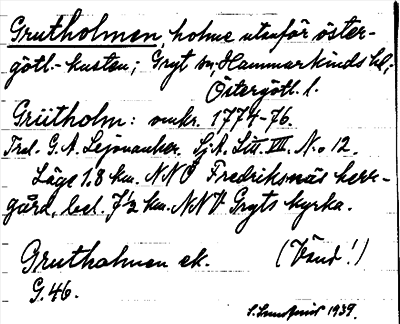 Grutholmen, holme utanför öster-
götl.-kusten; Gryt sn, Hammarkinds hd,
Östergötl. l.
Grütholm: omkr. 1774-76.
Trol. G. A. Lejonanker. Sj. A. Litt. VIII. No 12.
Läge 1.8 km. NNO Fredriksnäs herr-
gård, bel. 7½ km. NNV Gryts kyrka.
Grutholmen ek. (Vänd!)
G. 46.
S. 1939.